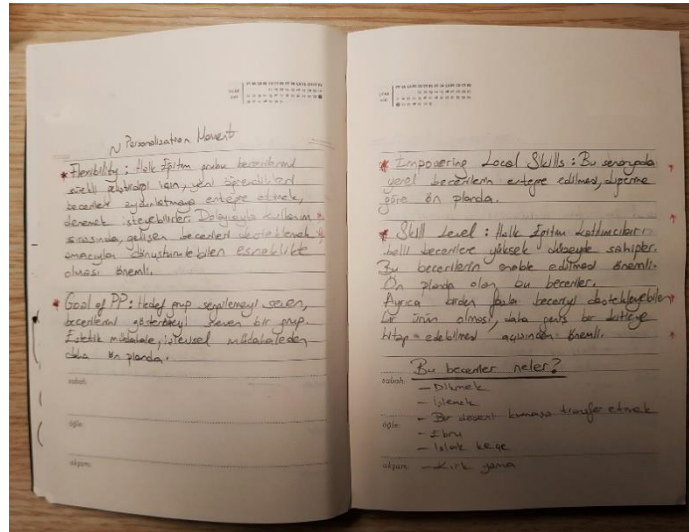 ~ Personalisation Movent
* Flexibility : Halk Eğitim grubu becerilerini
sürekli geliştirdiği için, yeni öğrendikleri
becerileri aydınlatmaya entegre etmek,
denemek isteyebilirler. Dolayısıyla kullanım
sırasında, gelişen becerileri desteklemek
amacıyla dönüştürülebilen esneklikte
olması önemli.
* Goal of PP : Hedef grup sergilemeyi seven,
becerilerini göstermeyi seven bir grup.
Estetik müdahale, işlevsel müdahaleden
daha ön planda.
sabah:
öğle:
akşam:
* Empowering Local Skills : Bu senaryoda
yerel becerilerin entegre edilmesi, diğerine
göre ön planda.
* Skill Level : Halk Eğitim katılımcıları
belli becerilere yüksek düzeyde sahipler.
Bu becerilerin enable edilmesi önemli.
Ön planda olan bu beceriler.
Ayrıca birden fazla beceriyi destekleyebilen
bir ürün olması, daha geniş bir kitleye
hitap edebilmesi açısından önemli.
Bu beceriler neler?
sabah:
- Dikmek
- İşlemek
öğle:
- Bir deseni kumaşa transfer etmek
- Ebru
- Islak keçe
akşam:
- Kırk yama